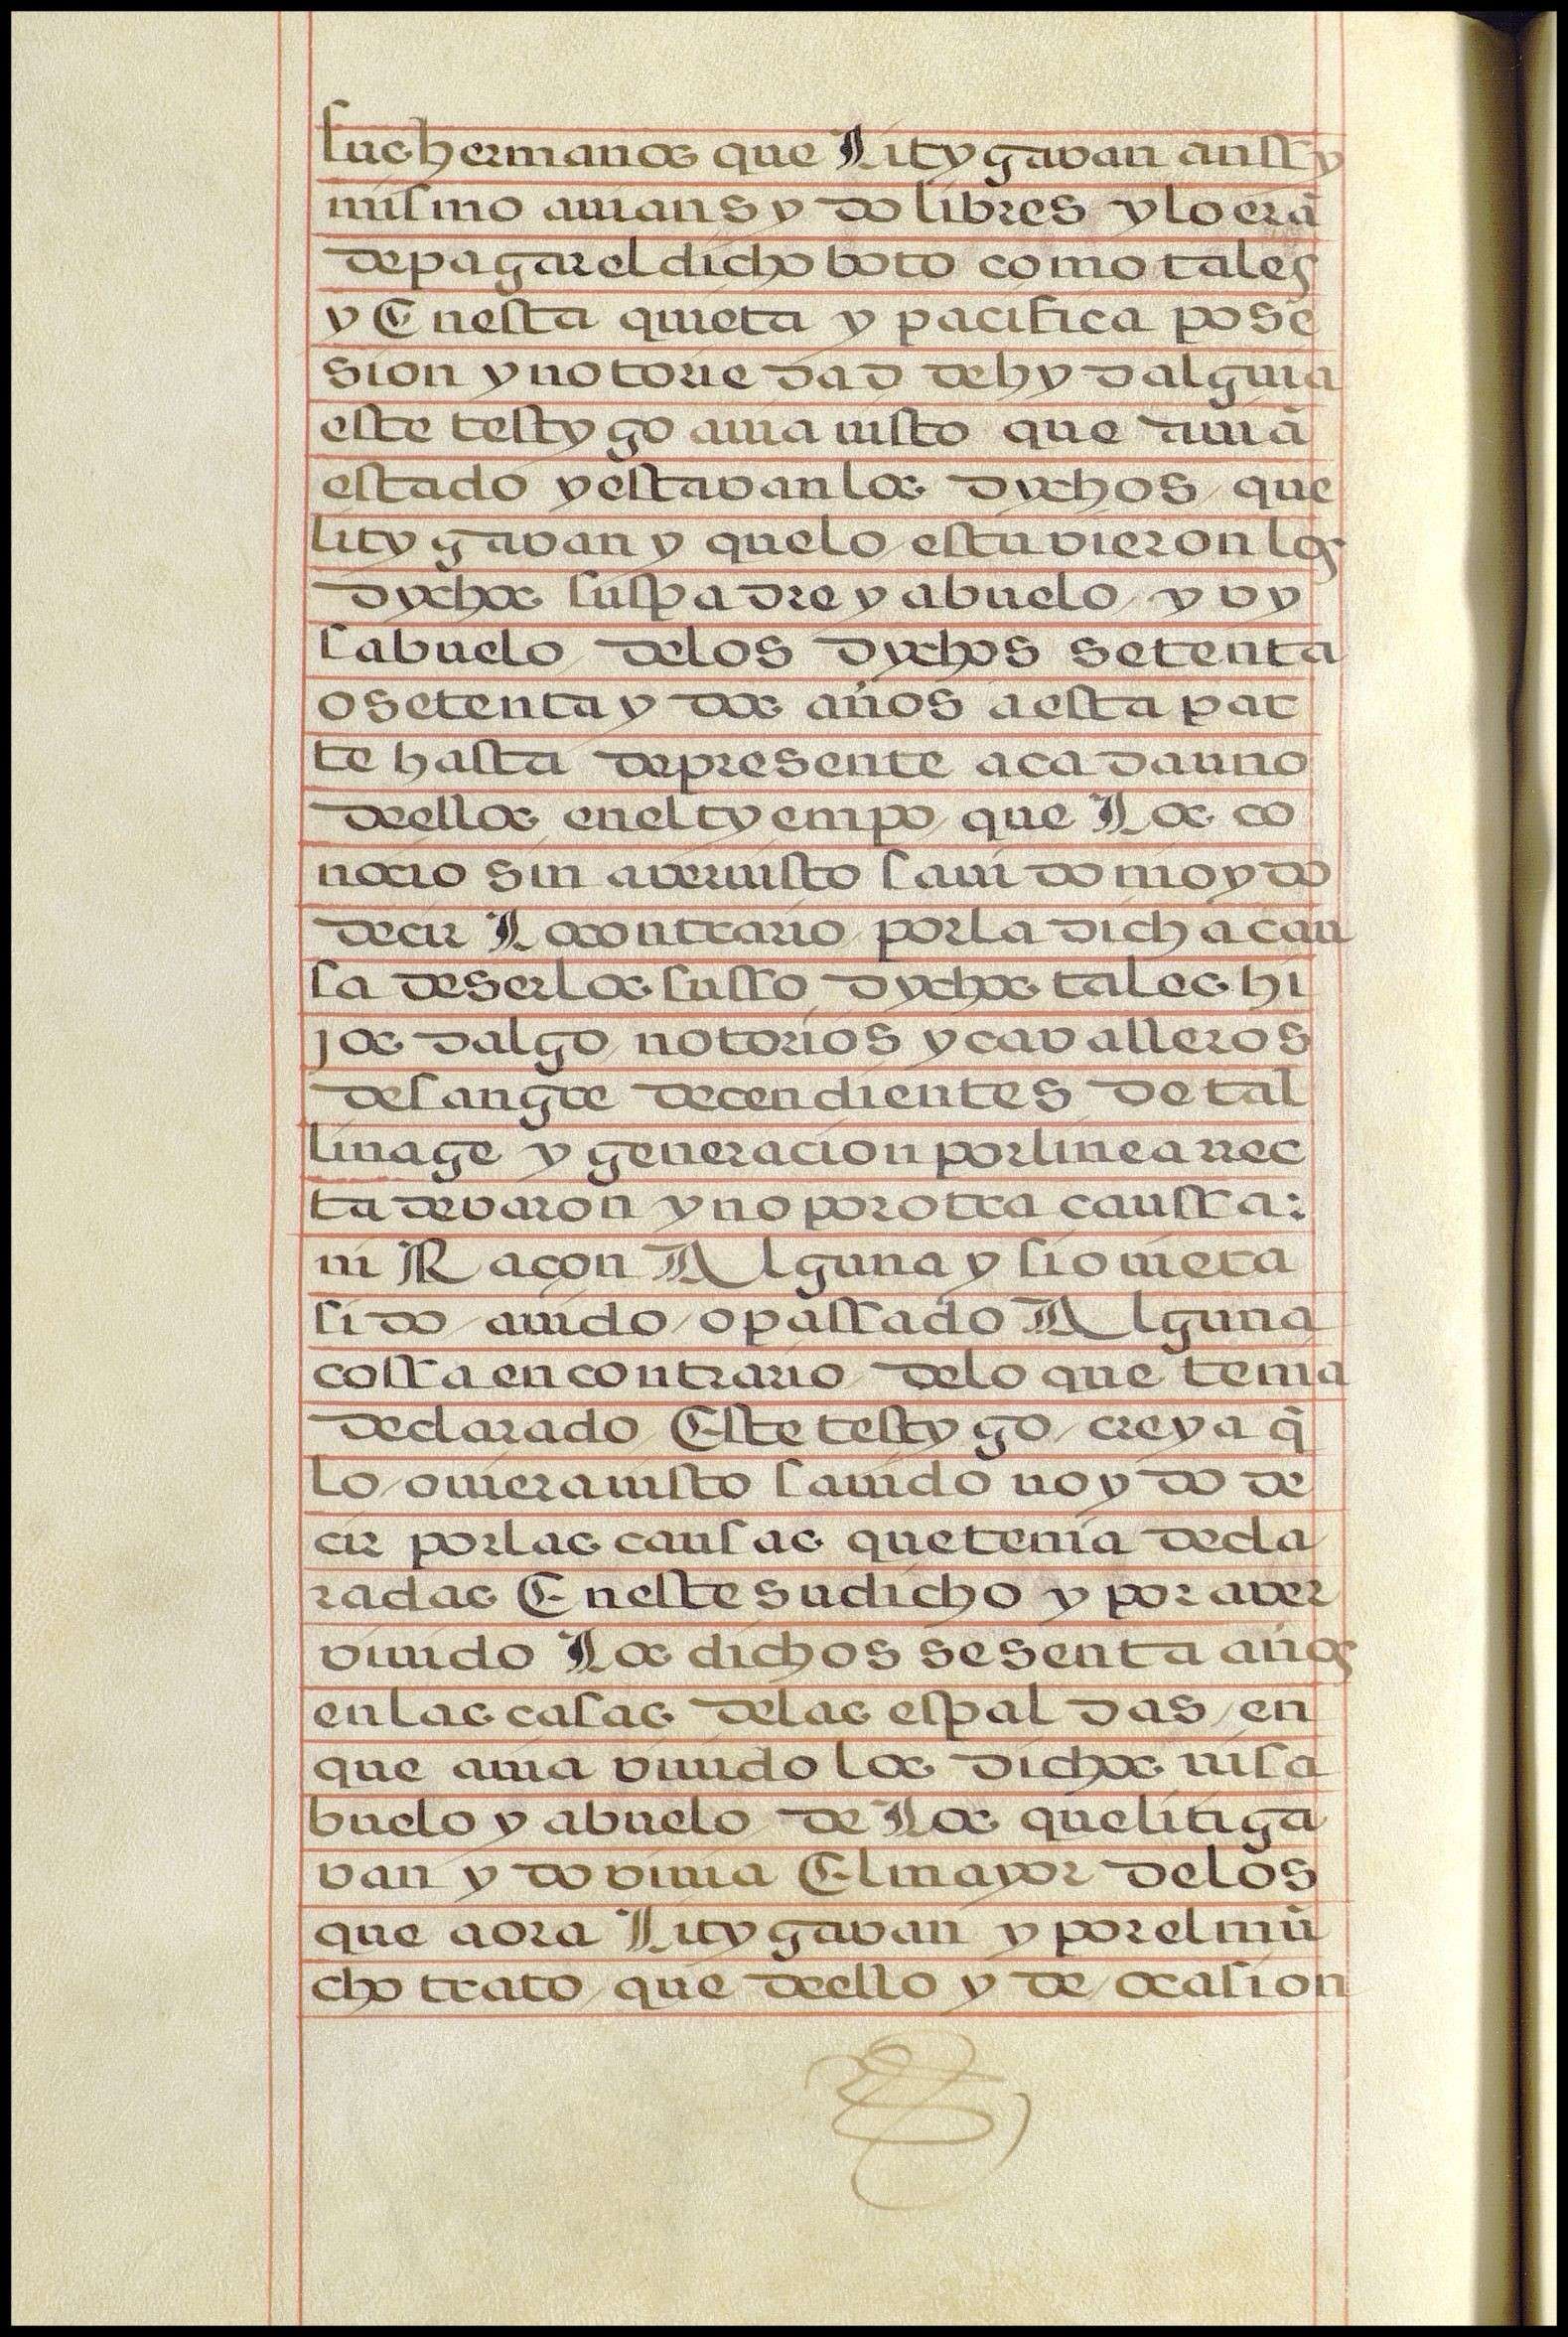 sus hermanos que Litygavan anssy
mismo avian sydo libres y lo erã
de pagar el dicho boto como tales
y En esta quieta y pacifica pose
sion y notoriedad de hydalguia
este testygo avia visto que aviã
estado y estavan los dychos que
litygavan y que lo estuvieron los
dychos sus padre y abuelo y vy
sabuelo de los dychos setenta
o setenta y dos años a esta par
te hasta de presente a cada uno
de ellos en el tyempo que Los co
nocio sin aver visto savido ni oydo
decir Lo contrario por la dicha cau
sa de ser los susso dychos tales hi
jos dalgo notorios y cavalleros
de sangre decendientes de tal
linage y generacion por linea rrec
ta de varon y no por otra caussa:
ni Raçon Alguna y si oviera
sido avido o passado Alguna
cossa en contrario de lo que tenia
declarado Este testygo creya q̃
lo oviera visto savido u oydo de
cir por las causas que tenia decla
radas En este su dicho y por aver
vivido Los dichos sesenta años
en las casas de las espaldas en
que avia vivido los dichos visa
buelo y abuelo de Los que litiga
van y do vivia El mayor de los
que aora Litygavan y por el mũ
cho trato que de ello y de ocasion